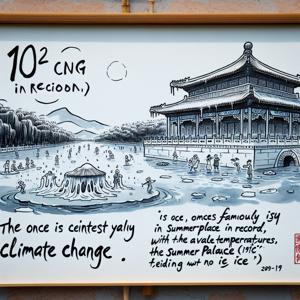 10² CNG
in Recioon,)
The once is ceintest yaly
climate change.
is oce, omces famiouly isy
in Summerplace in record,
with the avale temperratures,
the Summer Palace
teiding wut no is ice")
209-19